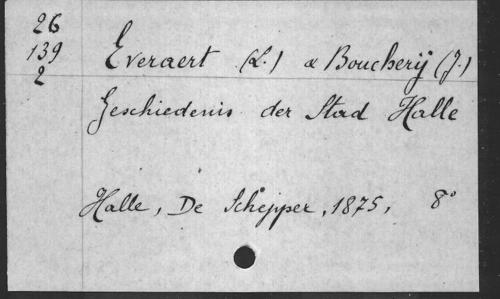 26
139
2
Everaert (L.) & Boucherij (J.)
Geschiedenis der Stad Halle
Halle, De Schepper, 1875, 8°